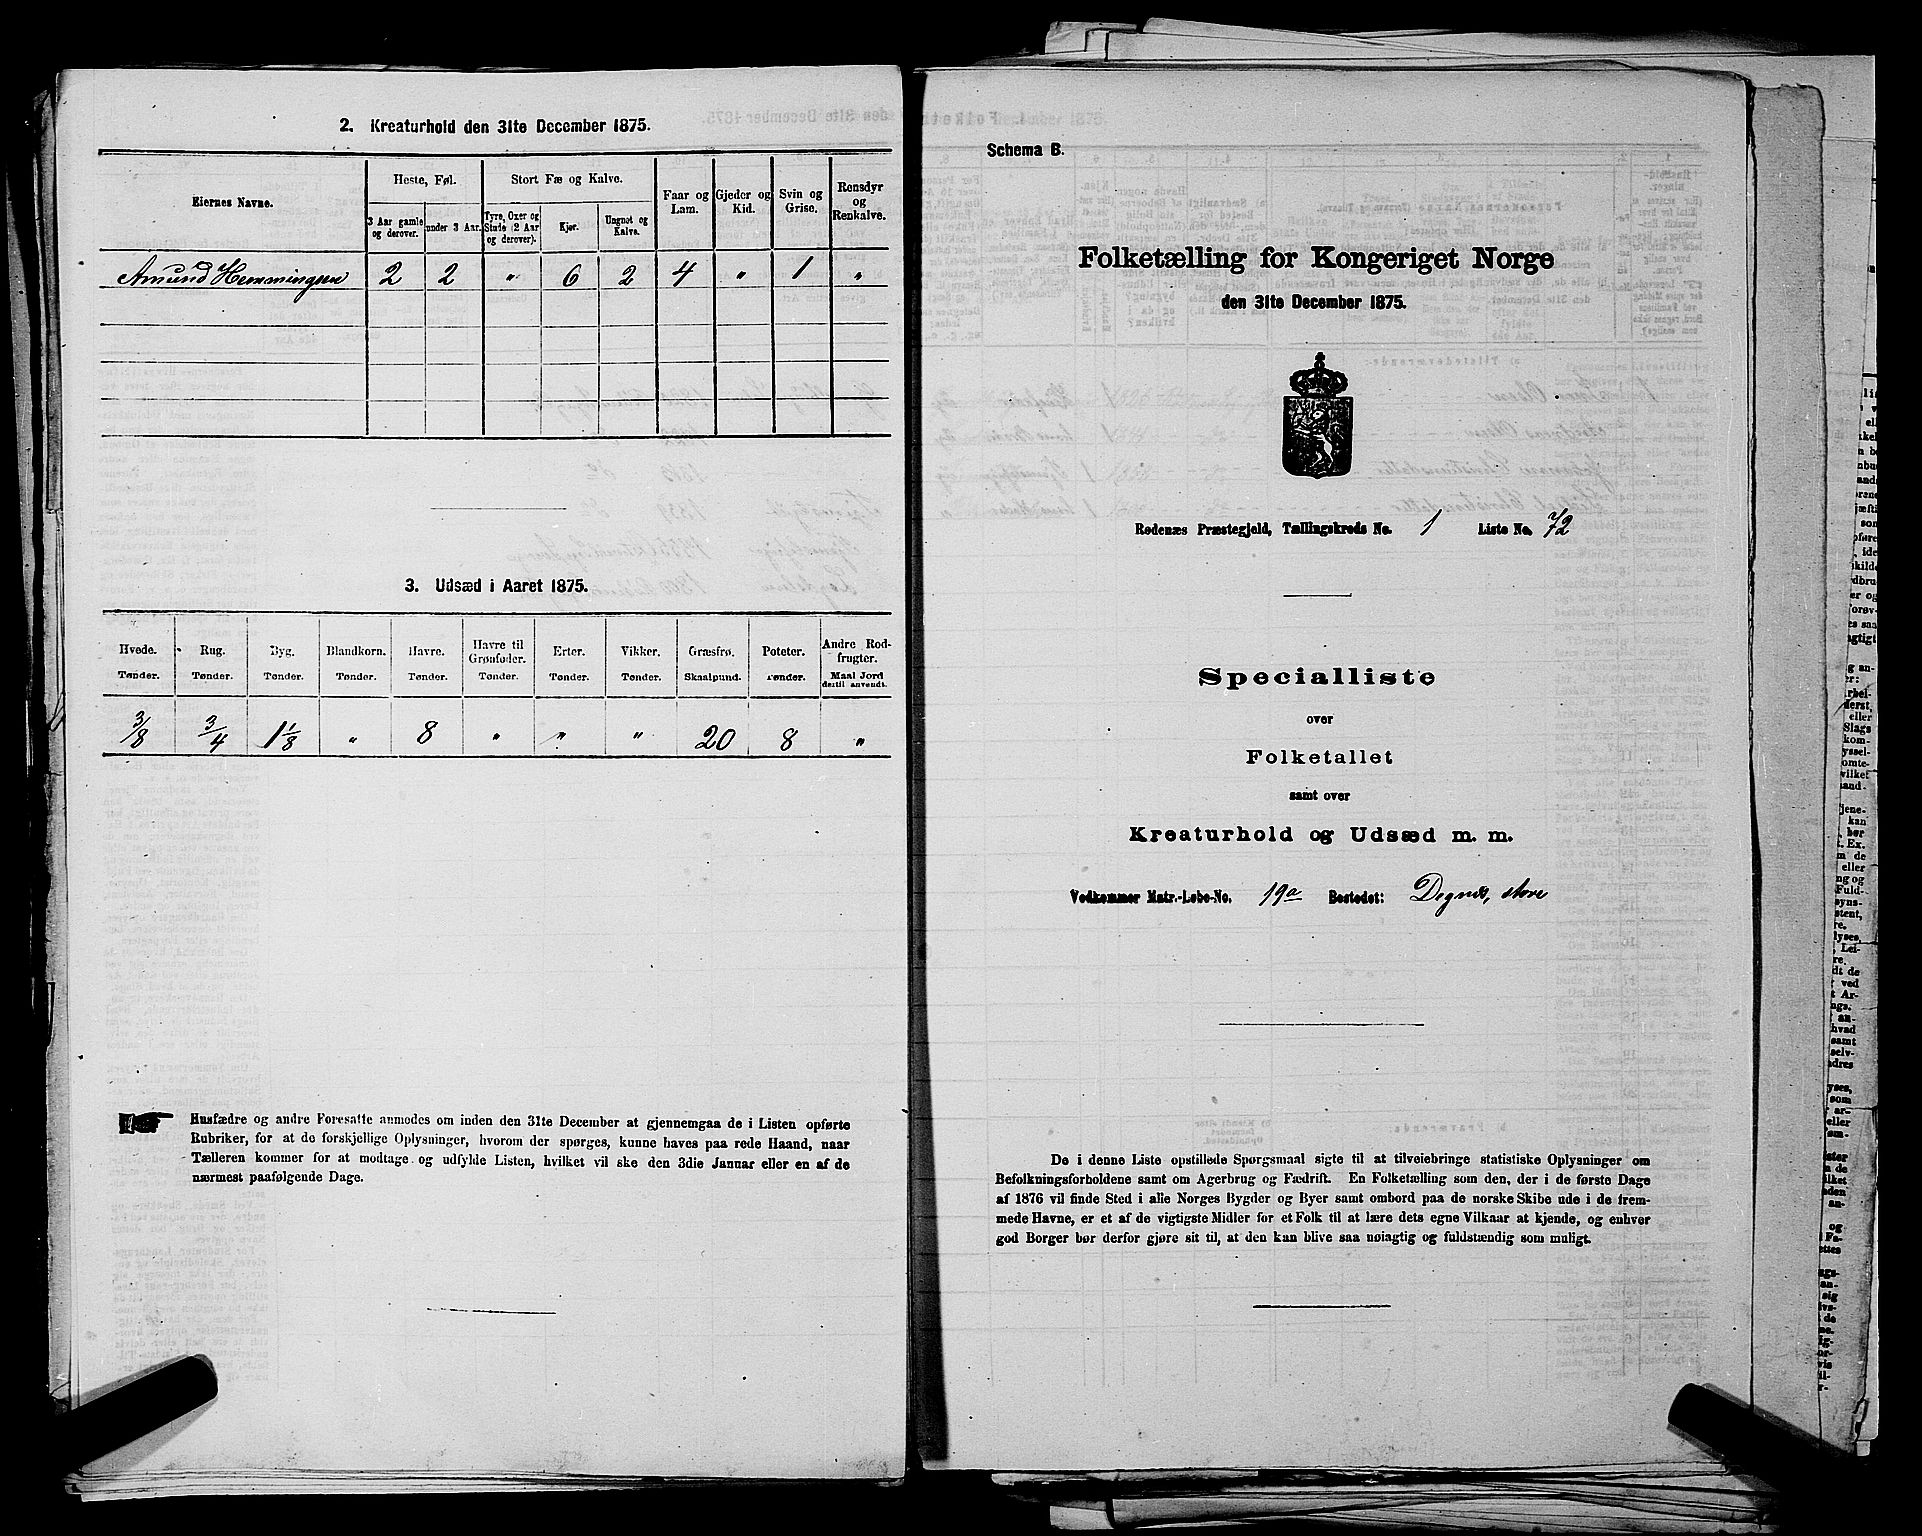 2. Kreaturhold den 31te December 1875.
Eiernes Navne.
Heste, Føl.
Stort Fæ og Kalve.
Faar og Lam.
Gjeder og Kid.
Svin og Grise.
Rensdyr og Renkalve.
3 Aar gamle og derover.
under 3 Aar.
Tyre, Oxer og Stude (2 Aar og derover).
Kjør.
Ungnøt og Kalve.
Amund Hemmingsen 2 2 " 6 2 4 " 1 "
3. Udsæd i Aaret 1875.
Hvede. Rug. Byg. Blandkorn. Havre. Havre til Grønfoder. Erter. Vikker. Græsfrø. Poteter. Andre Rodfrugter.
Tønder. Tønder. Tønder. Tønder. Tønder. Tønder. Tønder. Tønder. Skaalpund. Tønder. Maal Jord dertil anvendt.
3/8 3/4 1 1/8 " 8 " " " 20 8 "
Husfædre og andre Foresatte anmodes om inden den 31te December at gjennemgaa de i Listen opførte
Rubriker, for at de forskjellige Oplysninger, hvorom der spørges, kunne haves paa rede Haand, naar
Tælleren kommer for at modtage og udfylde Listen, hvilket vil ske den 3die Januar eller en af de
nærmest paafølgende Dage.
Schema B.
Folketælling for Kongeriget Norge
den 31te December 1875.
Rødenæs Præstegjeld, Tællingskreds No. 1 Liste No. 72
Specialliste
over
Folketallet
samt over
Kreaturhold og Udsæd m. m.
Vedkommer Matr.-Løbe-No. 19a Bostedet: Degnes, store
De i denne Liste opstillede Spørgsmaal sigte til at tilveiebringe statistiske Oplysninger om
Befolkningsforholdene samt om Agerbrug og Fædrift. En Folketælling som den, der i de første Dage
af 1876 vil finde Sted i alle Norges Bygder og Byer samt ombord paa de norske Skibe ude i de frem-
mede Havne, er et af de vigtigste Midler for et Folk til at lære dets egne Vilkaar at kjende, og enhver
god Borger bør derfor gjøre sit til, at den kan blive saa nøiagtig og fuldstændig som muligt.